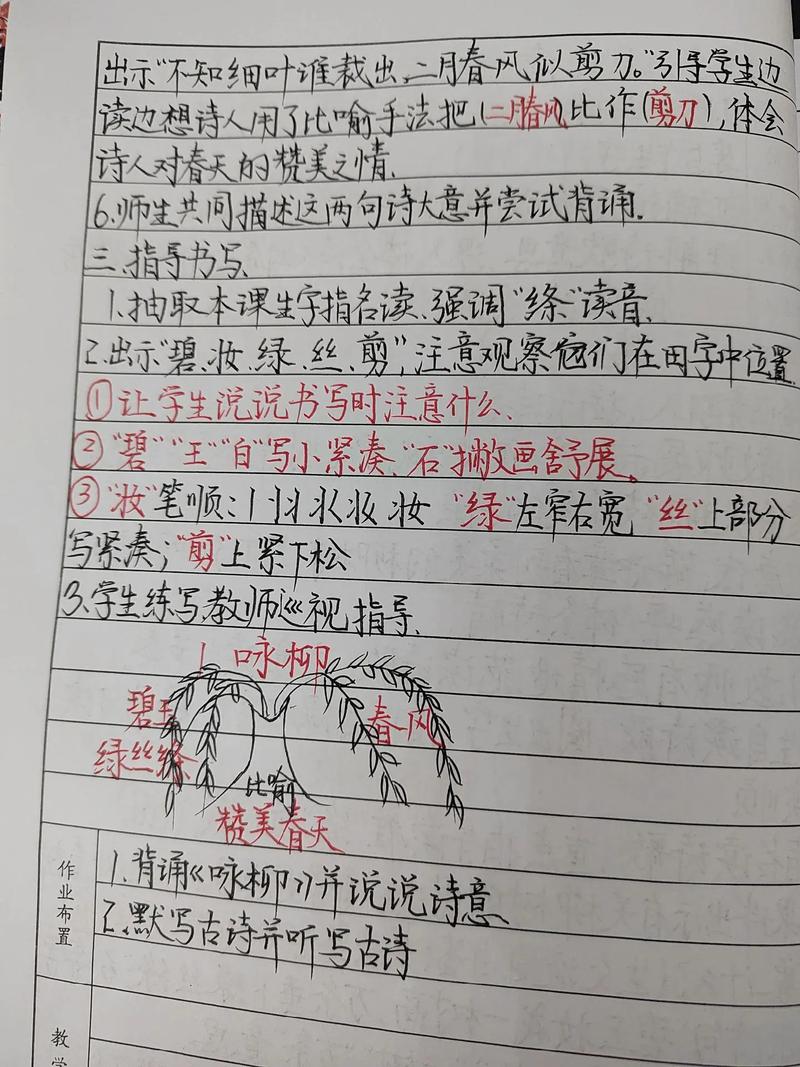 出示“不知细叶谁裁出,二月春风似剪刀。”引导学生边
读边想诗人用了比喻手法把(二月春风)比作(剪刀),体会
诗人对春天的赞美之情.
6.师生共同描述这两句诗大意并尝试背诵.
三.指导书写.
1.抽取本课生字指名读、强调“绦”读音.
2.出示“碧、妆、绿、丝、剪”,注意观察它们在田字中位置
①让学生说说书写时注意什么.
②“碧”“王”“白”写小紧凑、“石”撇画舒展。
③“妆”笔顺: 妆 “绿”左窄右宽 “丝”上部分
写紧凑;“剪”上紧下松
3.学生练写,教师巡视指导.
1 咏柳
碧玉 春风
绿丝绦
比喻
赞美春天
作业布置
1.背诵《咏柳》并说说诗意
2.默写古诗并听写古诗
教学